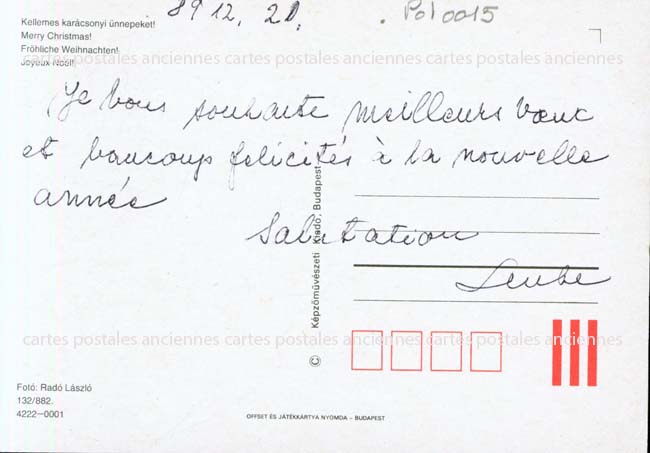 89 12. 20.
Pol0015
Kellemes karácsonyi ünnepeket!
Merry Christmas!
Fröhliche Weihnachten!
Joyeux Noël!
cartes postales anciennes cartes postales anciennes cartes postales anciennes
Je vous souhaite meilleurs vœux
et baucoup felicités à la nouvelle
année
Salutation
© Képzőművészeti Kiadó, Budapest
cartes postales anciennes cartes postales anciennes cartes postales anciennes
Fotó: Radó László
132/882.
4222–0001
OFFSET ÉS JÁTÉKKÁRTYA NYOMDA – BUDAPEST